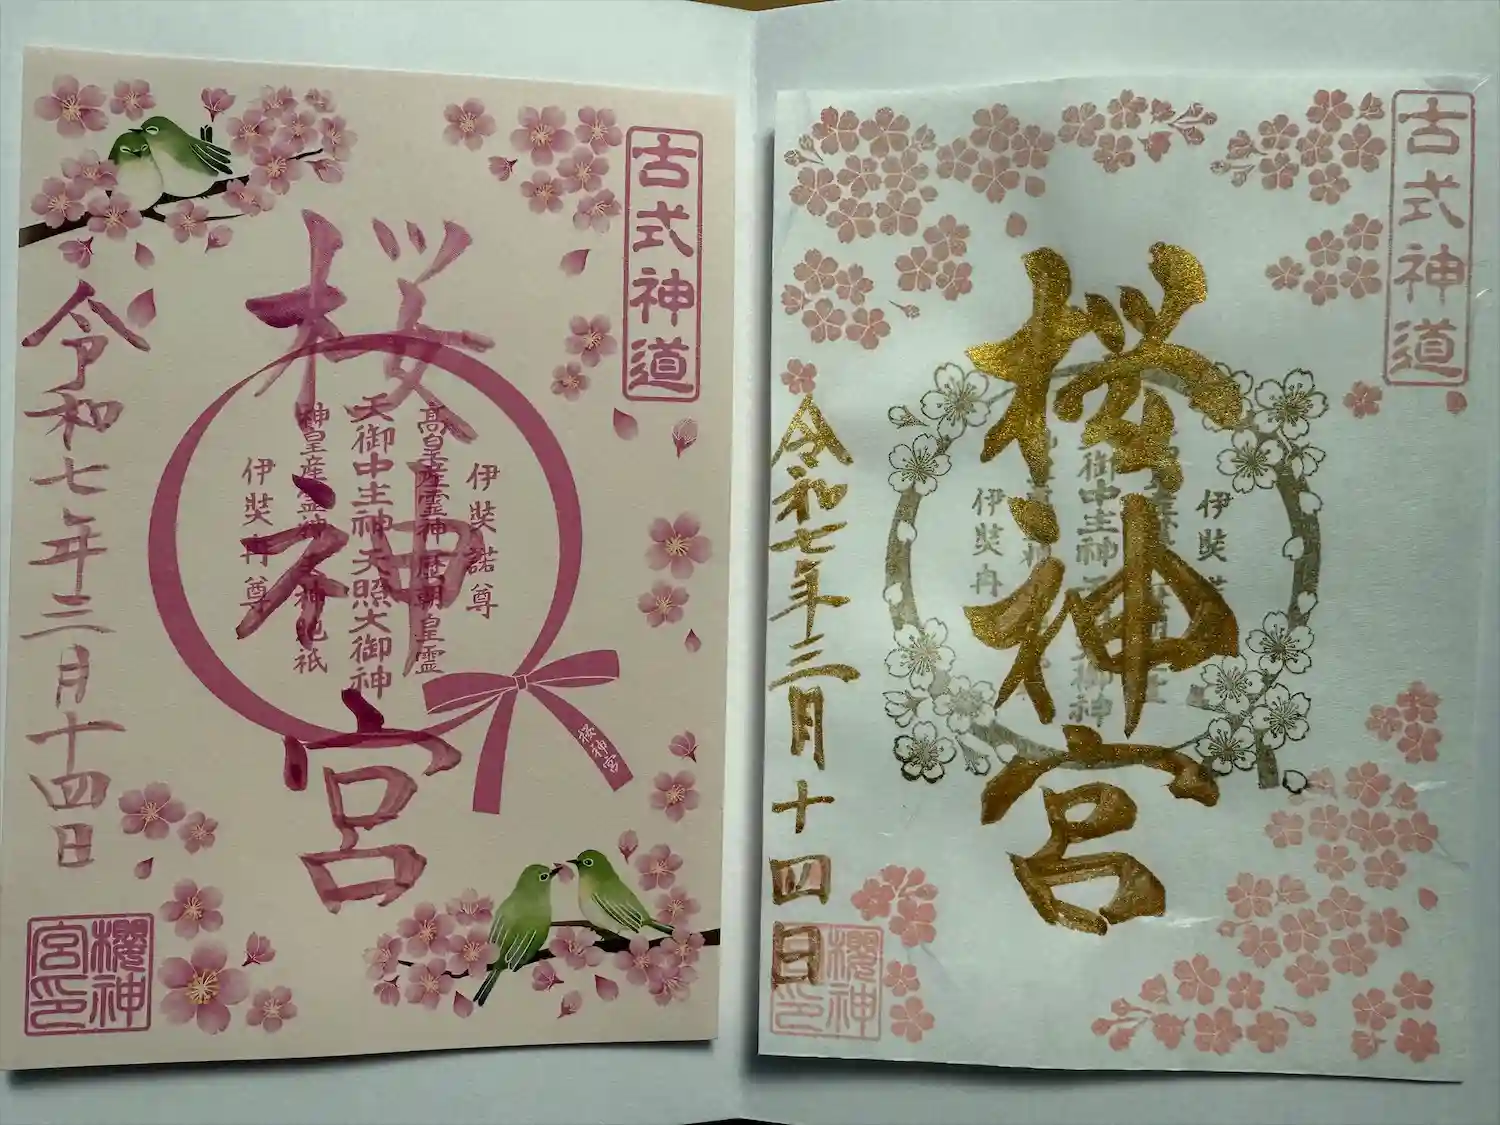 古式神道
桜神宮
伊奘諾尊
高皇産霊神 歴朝皇霊
天御中主神 天照大御神
神皇産霊神 神地祇
伊奘冉尊
桜神宮
令和七年三月十四日
櫻神宮印
古式神道
桜神宮
伊奘諾
御中主神 御神
伊奘冉
令和七年三月十四日
櫻神宮印